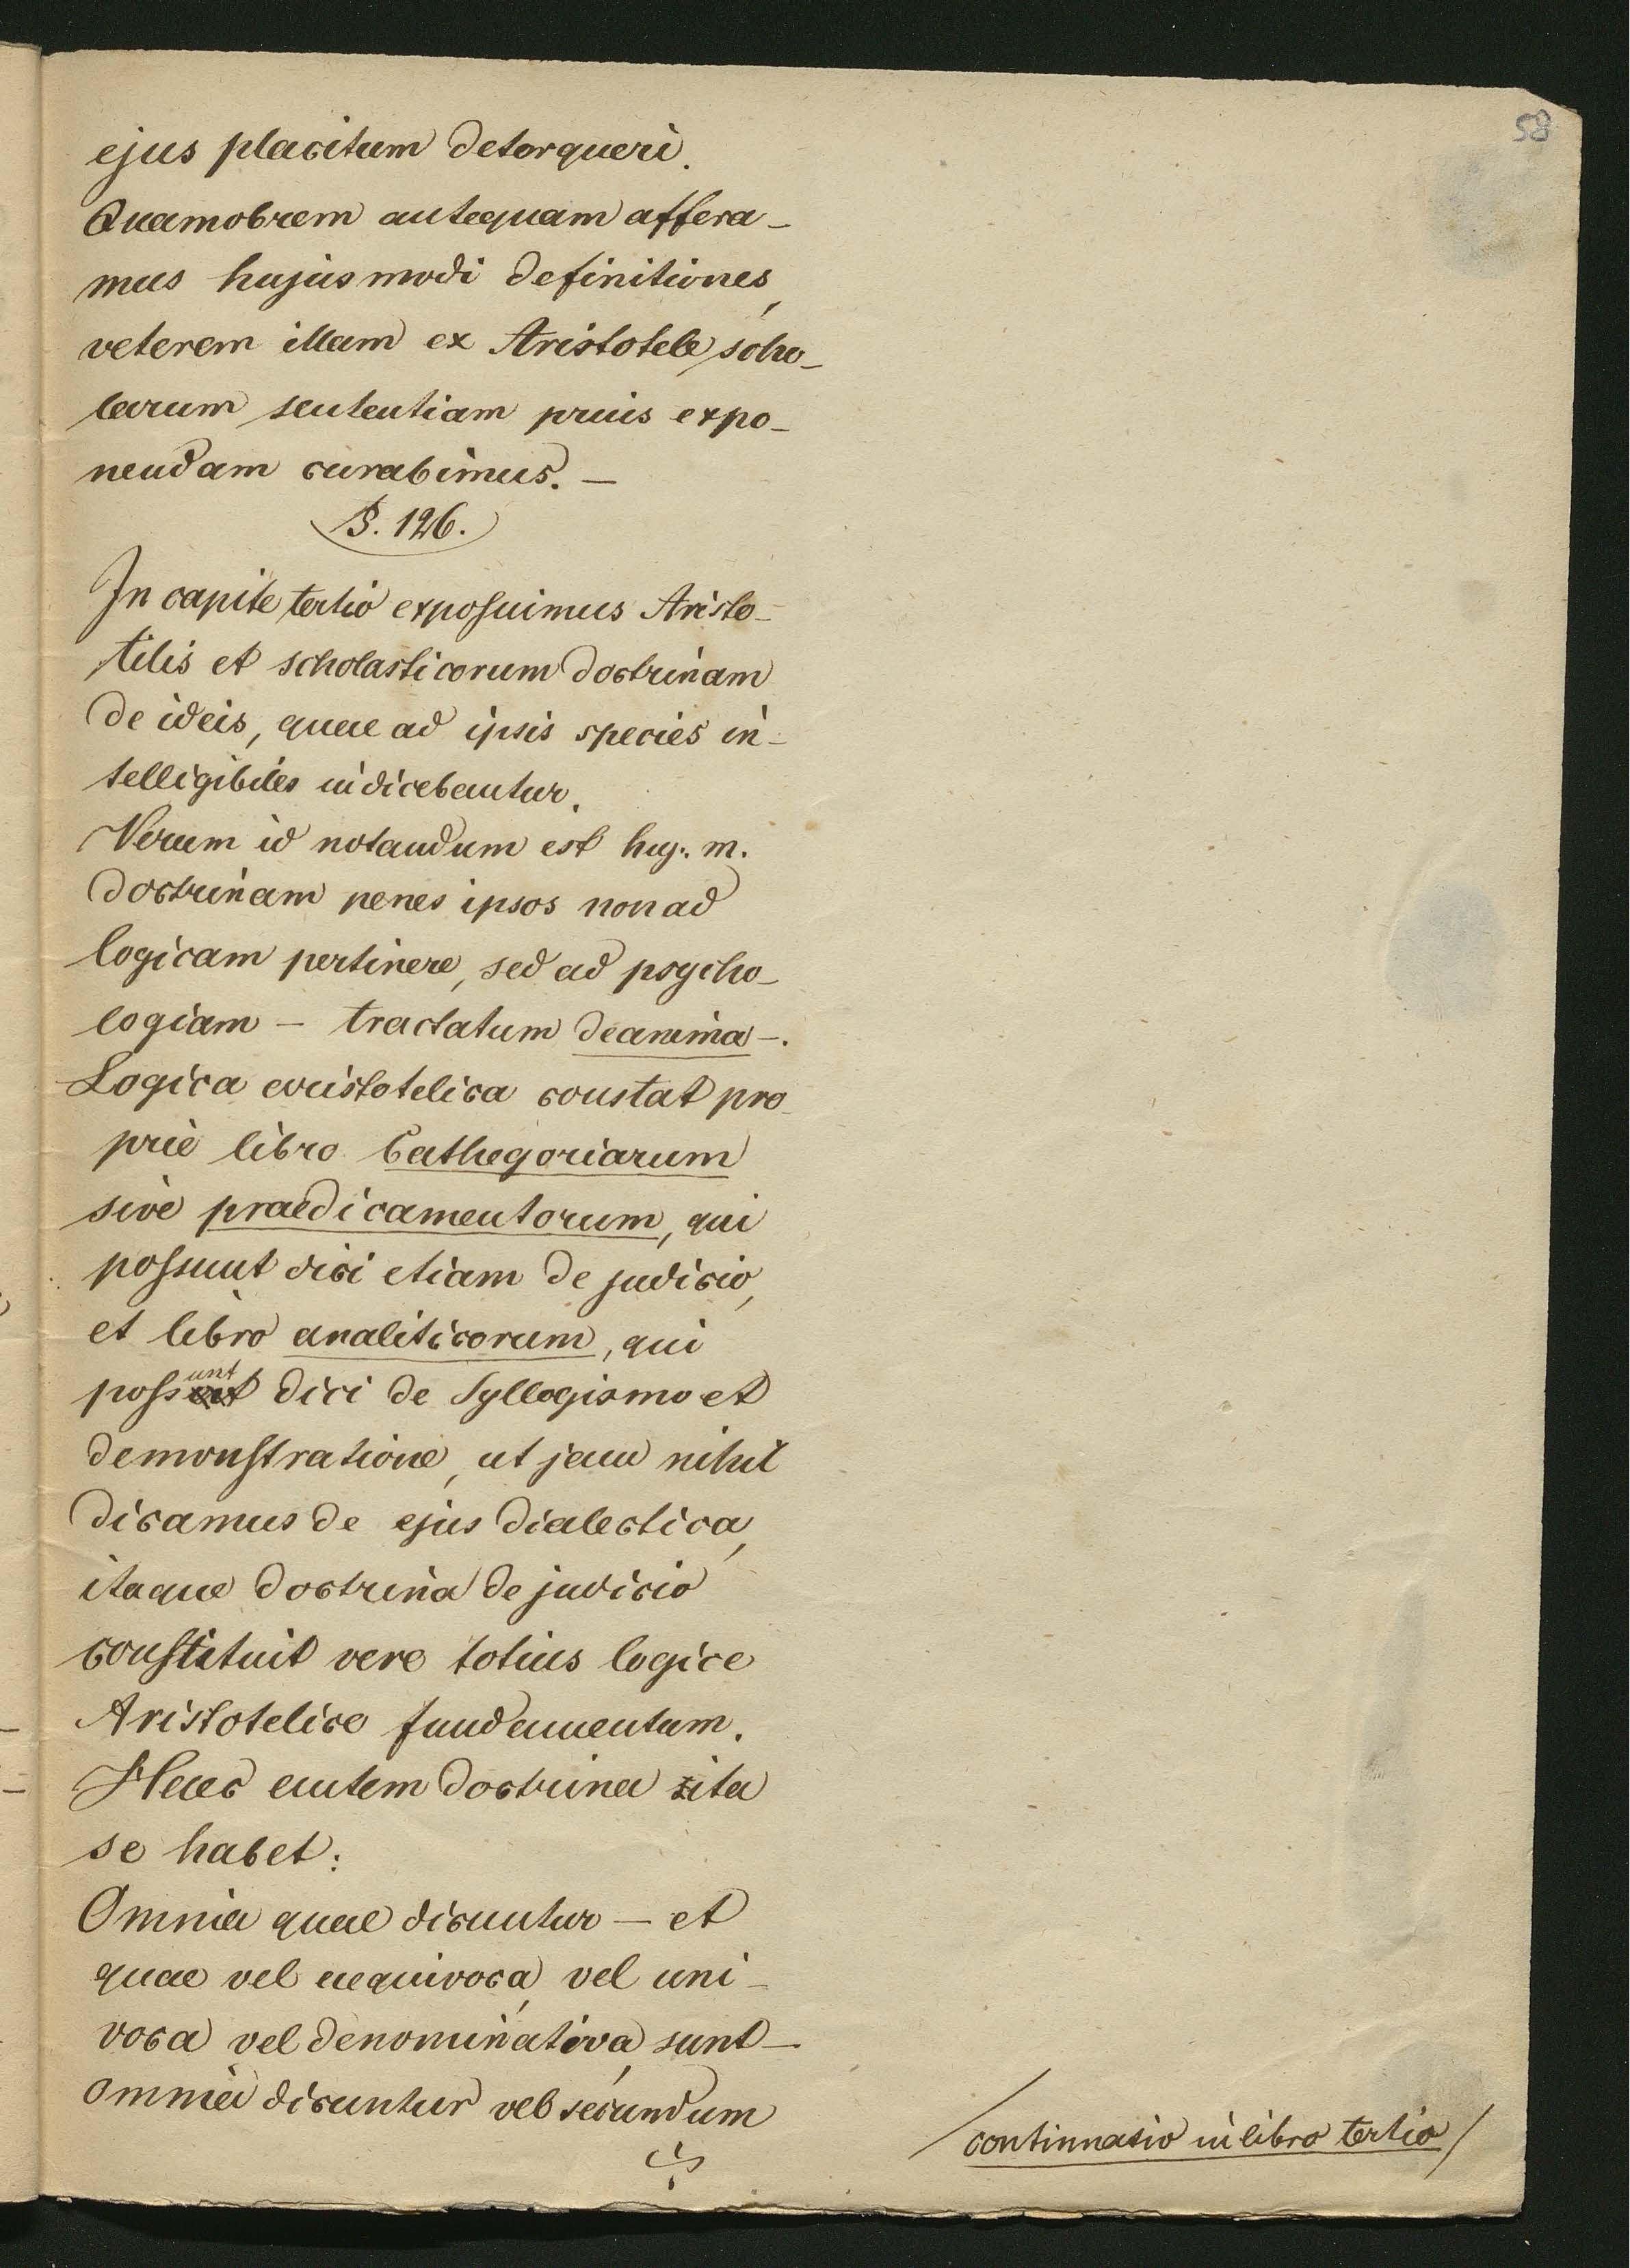 58
ejus placitum detorqueri.
Quamobrem antequam affera-
mus hujusmodi definitiones,
veterem illam ex Aristotele scho-
larum sententiam prius expo-
nendam curabimus. —
§. 126.
In capite tertio exposuimus Aristo-
tilis et scholasticorum doctrinam
de ideis, quae ad ipsis species in-
telligibiles indicebantur.
Verum id notandum est huj. m.
doctrinam penes ipsos non ad
logicam pertinere, sed ad psycho-
logiam — tractatum de anima —.
Logica aristotelica constat pro-
prie libro Cathegoriarum
sive praedicamentorum, qui
possunt dici etiam de judicio,
et libro analiticorum, qui
possunt dici de Syllogismo et
demonstratione, ut jam nihil
dicamus de ejus dialectica,
itaque doctrina de judicio
constituit vere totius logice
Aristotelice fundamentum.
Haec autem doctrina ita
se habet:
Omnia quae dicuntur — et
quae vel aequivoca, vel uni-
voca vel denominativa sunt —
omnia dicuntur vel secundum
/continuatio in libro tertio/